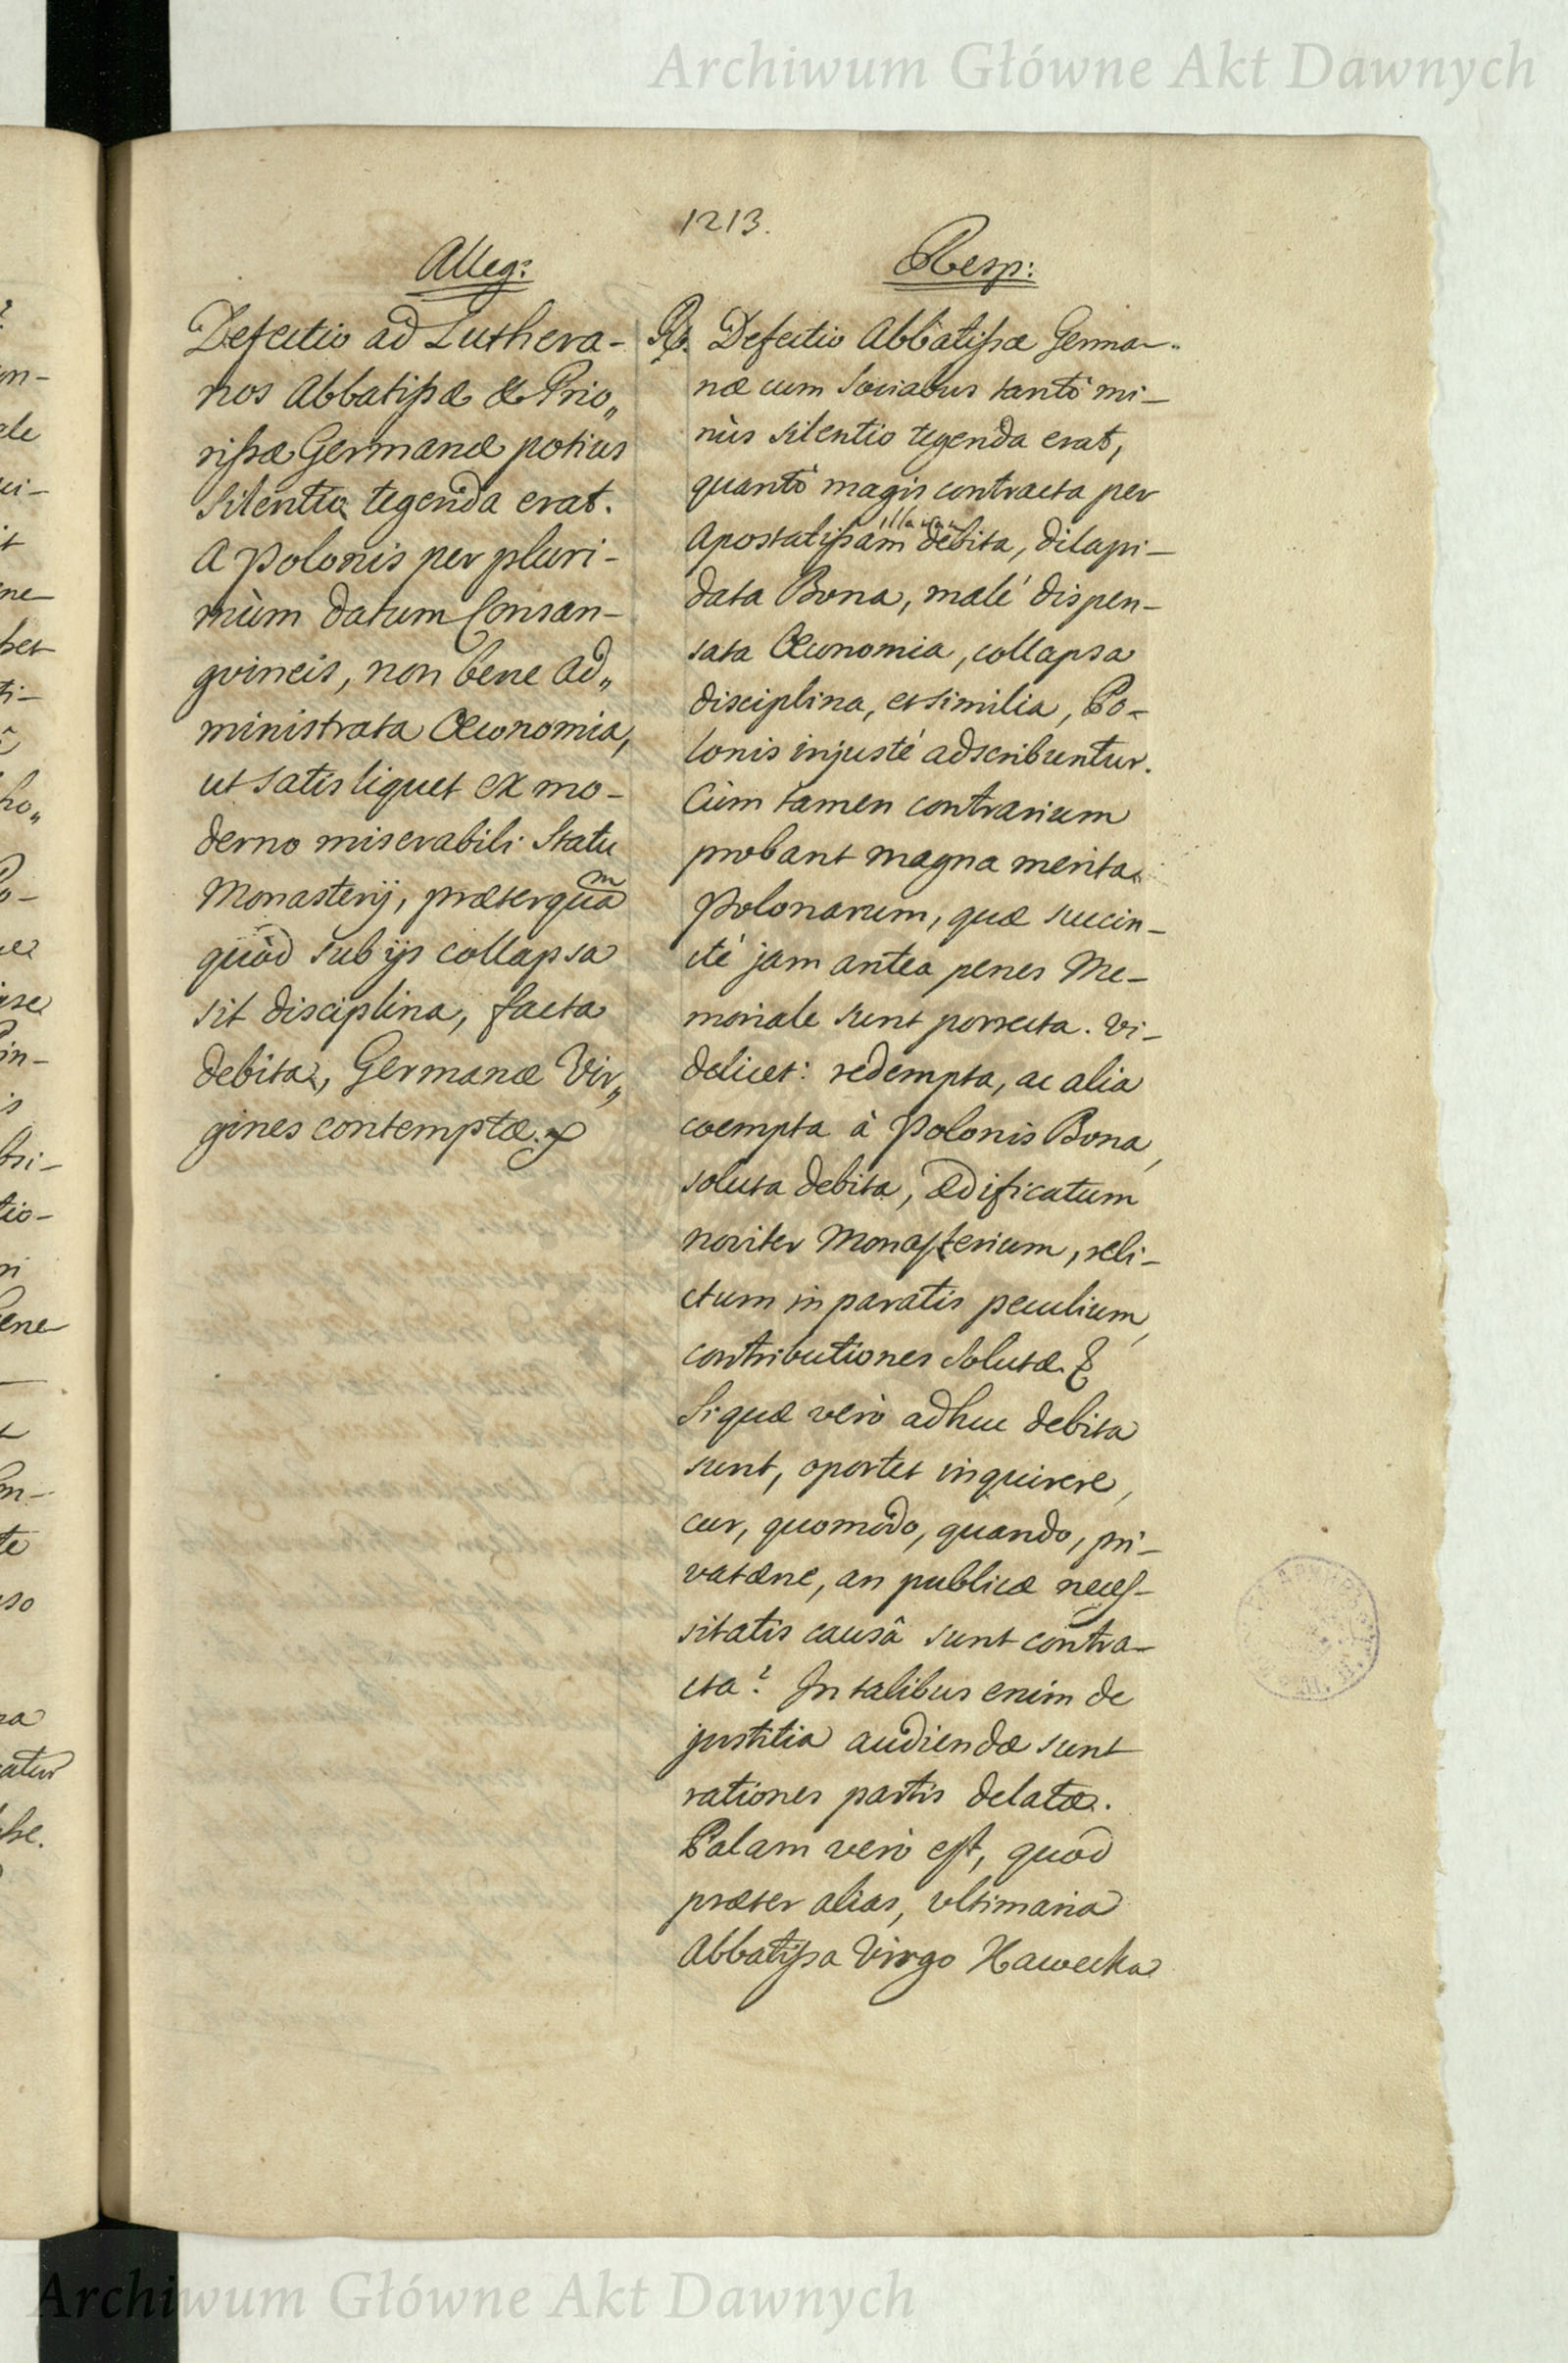 Archiwum Główne Akt Dawnych
1213.
Alleg:
Defectio ad Luthera-
nos Abbatißæ & Prio„
rißæ Germanæ potius
Silentio tegenda erat.
A Polonis per pluri-
mùm datum Consan-
gvineis, non bene ad„
ministrata Œconomia,
ut satis liquet ex mo-
derno miserabili Statu
Monasterij, præterqua᷉m
quòd sub ijs collapsa
sit disciplina, facta
debita, Germanæ Vir„
gines contemptæ.
Resp:
Rx. Defectio Abbatißæ Germa-
næ cum Sociabus tantò mi-
nùs silentio tegenda erat,
quantò magis contracta per
Apostatißam illam debita, dilapi-
data Bona, malè dispen-
sata Œconomia, collapsa
disciplina, et similia, Po-
lonis injustè adscribuntur.
Cùm tamen contrarium
probant magna merita
Polonarum, quæ succin-
ctè jam antea penes Me-
moriale sunt porrecta. Vi-
delicet: redempta, ac alia
coempta à Polonis Bona,
soluta debita, ædificatum
noviter Monasterium, reli-
ctum in paratis peculium,
contributiones solutæ. &
Si quæ verò adhuc debita
sunt, oportet inquirere,
cur, quomodo, quando, pri-
vatæne, an publicæ neces-
sitatis causâ sunt contra-
cta? In talibus enim de
justitia audiendæ sunt
rationes partis delatæ.
Palam verò est, quòd
præter alias, ultimaria
Abbatißa Virgo Hawecka
Archiwum Główne Akt Dawnych